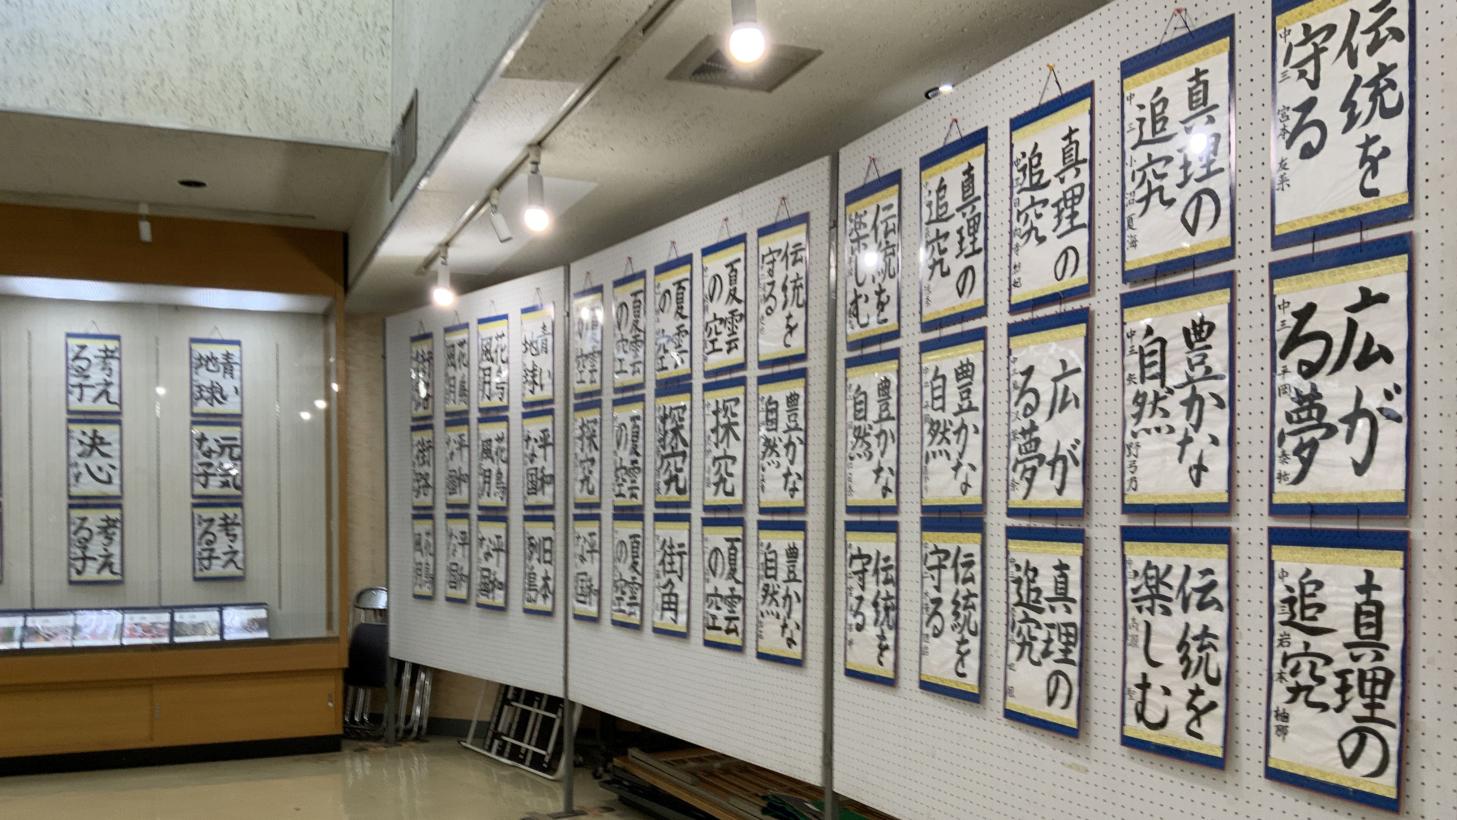 考え
る子
決心
考え
る子
青い
地球
元気
な子
考え
る子
花鳥
風月
平和
な国
平和
な国
花鳥
風月
花鳥
風月
平和
な国
青い
地球
平和
な国
旧日本
列島
夏雲
の空
探究
平和
な国
夏雲
の空
夏雲
の空
夏雲
の空
夏雲
の空
探究
街角
夏雲
の空
探究
夏雲
の空
伝統を
守る
豊かな
自然
豊かな
自然
伝統を
楽しむ
豊かな
自然
伝統を
守る
真理の
追究
豊かな
自然
伝統を
守る
真理の
追究
広が
る夢
真理の
追究
真理の
追究
中三
豊かな
自然
中三
伝統を
楽しむ
伝統を
守る
中三 宮本
広が
る夢
中三 平岡
真理の
追究
中三 岩本